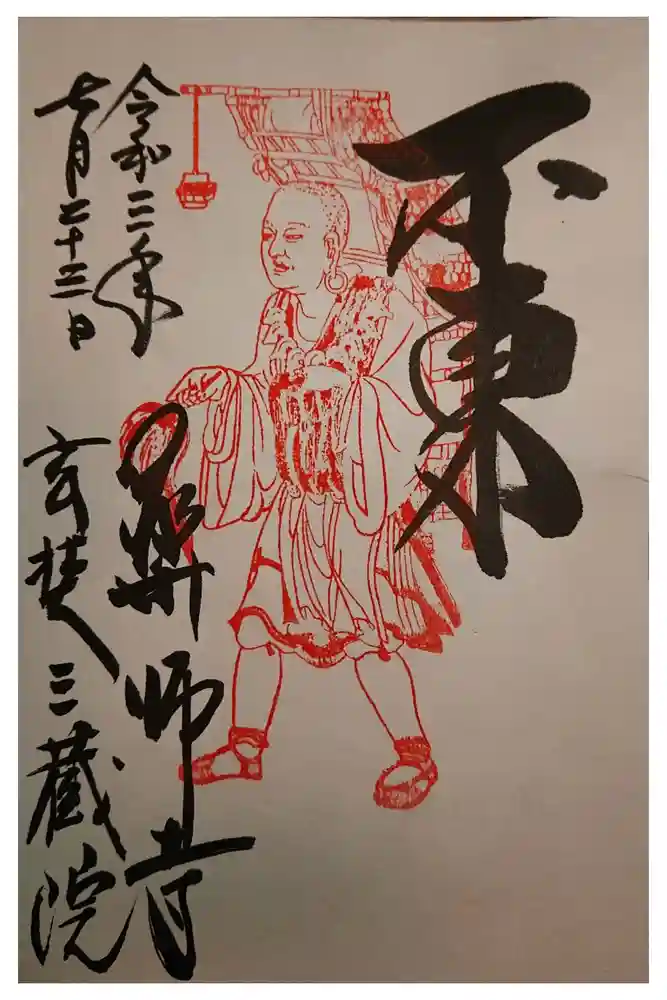 不東
令和三年
七月二十三日
薬師寺
玄奘三蔵院